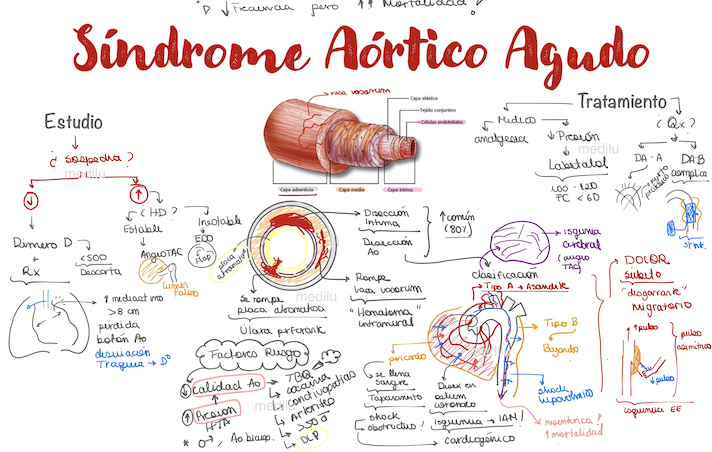 ↓ frecuencia pero ↑↑ Mortalidad!
Síndrome Aórtico Agudo
Estudio
¿ sospecha ?
medilu
↓
↑
Dimero D
+
Rx
< 500
Descarta
¿ HD ?
Estable
Inestable
AngioTAC
ECO
lumen
falso
↑ mediastino
> 8 cm
perdida
botón Ao
desviación
Traquea → Dº
vasa vasorum
Capa elástica
Tejido conjuntivo
Células endoteliales
Capa adventicia
Capa media
Capa íntima
placa
ateromatosa
Disección
Intima
Disección
Ao
↑ común
(80%)
Rompe
vasa vasorum
"Hematoma
intramural"
medilu
Se rompe
placa ateromatosa
Úlcera penetrante
Factores Riesgo
↓ Calidad Ao
↑ Presión
HTA
TBQ
cocaina
conectivopatías
Arteritis
DLP
medilu
* O⃗, Ao bicusp.
Tratamiento
Médico
analgesia
↓ Presión
Labetalol
100 - 120
FC < 60
¿ Qx ?
DA - A
DA-B
complica
medilu
isquemia
cerebral
(angio
TAC)
clasificación
Tipo A → Ascendente
medilu
Tipo B
Descendente
pericardio
se llena
sangre
Taponamiento
shock
obstructivo!
Disección
ostium
coronario
isquemia → IAM!
cardiogénico
shock
hipovolémico
mesentérica!
↑ mortalidad
DOLOR
súbito
"desgarrante"
migratorio
↑ pulso
↓ pulso
pulso
asimétrico
isquemia EE